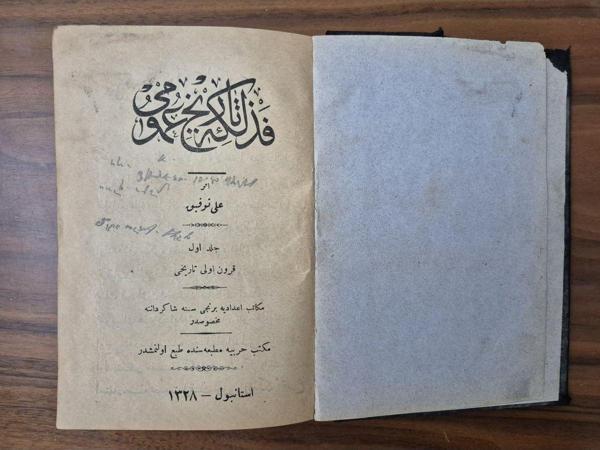 فذلكهٔ تاريخ عمومى
اثر
على توفيق
جلد اول
قرون اولى تاريخى
مكاتب اعداديه برنجى سنه شاكرداننه
مخصوصدر
مكتب حربيه مطبعه‌سنده طبع اولنمشدر
استانبول – ١٣٢٨